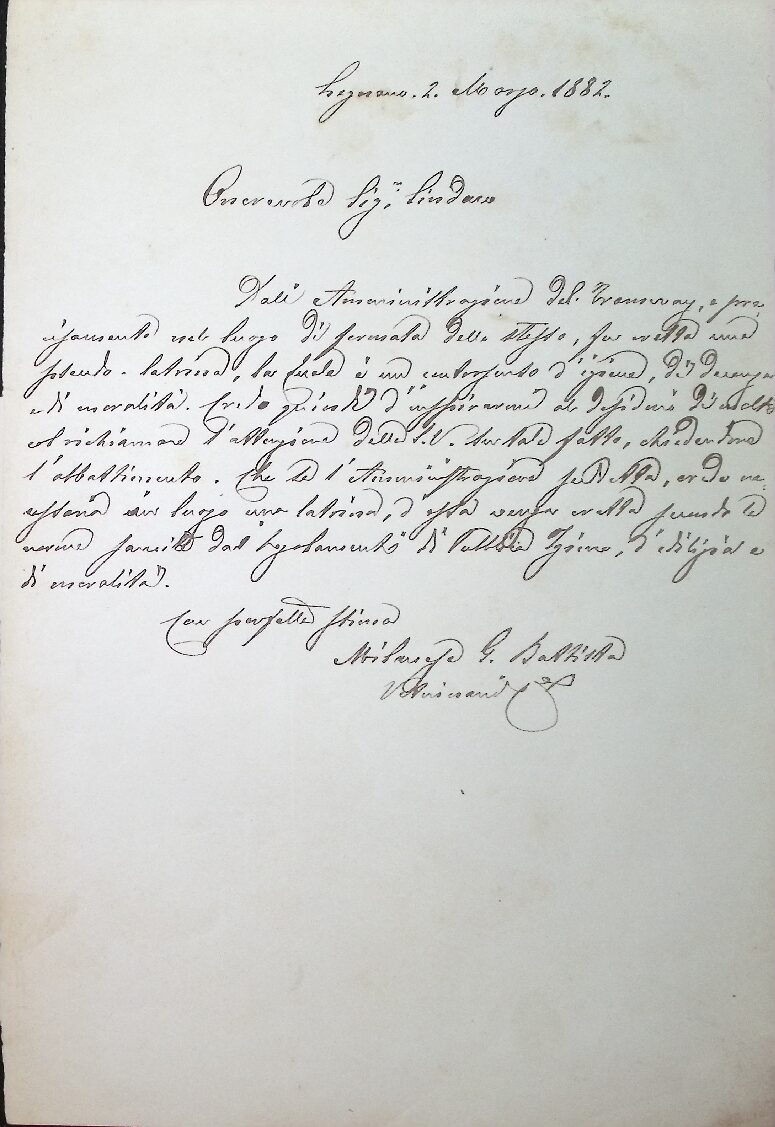 Legnano. 2. Marzo. 1882.
Onorevole Sig.r Sindaco
Dall' Amministrazione del Tramway, e pre=
cisamente nel luogo di fermata dello stesso, fu eretta una
pseudo-latrina, la quale è un controsenso d'igiene, di decenza
e di moralità. Credo quindi d'inspirarmi al desiderio di molti
col richiamare l'attenzione della S.V. su tale fatto, chiedendone
l'abbattimento. Che se l'Amministrazione sudetta, crede ne=
cessaria in luogo una latrina, d'essa venga eretta secondo le
norme sancite dal Regolamento di Pubblica Igiene, d'edilizia e
di moralità.
Con perfetta stima
Milanese G. Battista
Veterinario